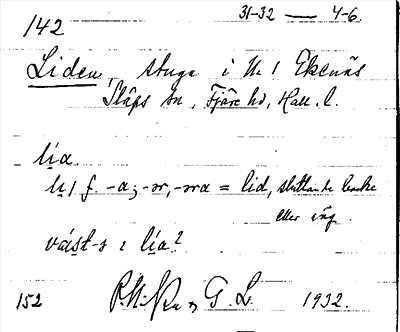 142 31-32 — 4-6.
Liden, stuga i N. 1 Ekenäs
Släps sn, Fjäre hd, Hall. l.
lía
f. -a; -ər, -əra = lid, sluttande backe
eller äng.
väst-s i lía?
152 G. L. 1932.